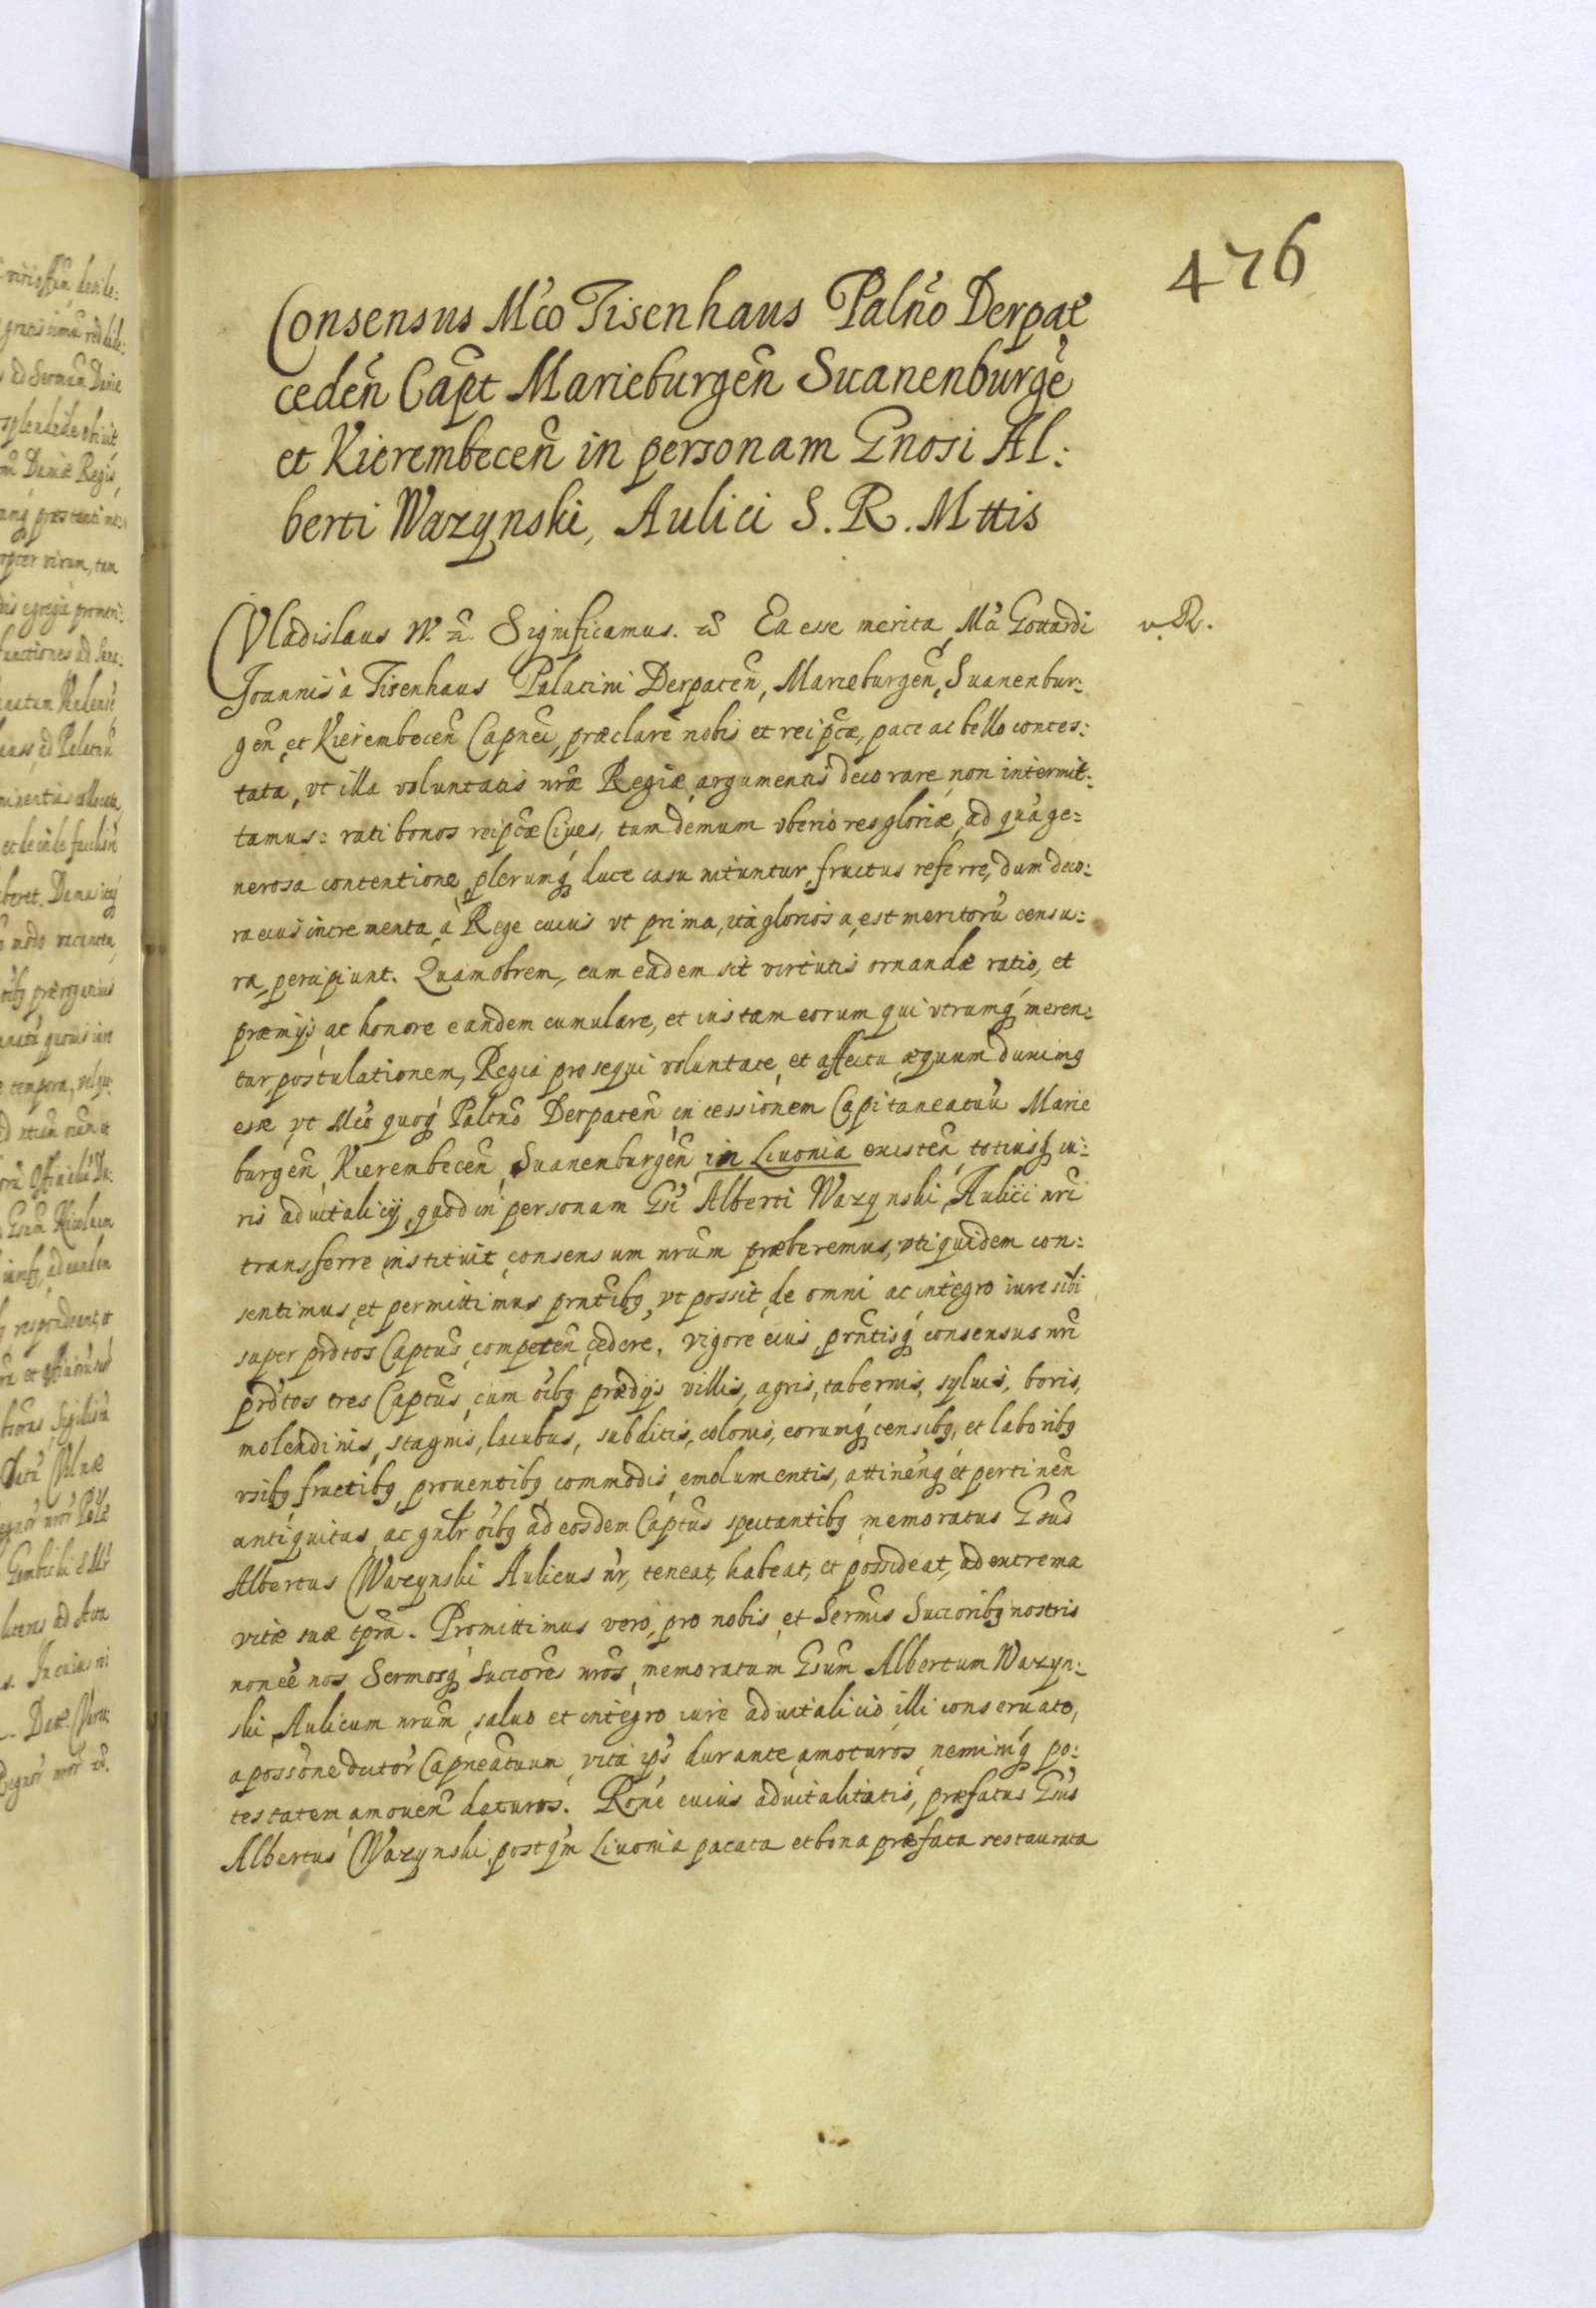 476
Consensus Mco Tisenhaus Palno Derpat
ceden Capt Marieburgen Suanenburge
et Kierembecen in personam Gnosi Al:
berti Wazynski, Aulici S. R. Mttis
Vladislaus IV. etc. Significamus. etc. Ea esse merita Mci Gottardi
v. R.
Joannis à Tisenhaus Palatini Derpaten, Marieburgen, Suanenbur:
gen et Kierembecen Capnei, præclare nobis et reipcæ, pace ac bello contes:
tata, vt illa voluntatis nræ Regiæ argumentis decorare non intermit:
tamus: rati bonos reipcæ Ciues, tum demum vberiores gloriæ, ad quã ge:
nerosa contentione plerumq́ duce casu nituntur, fructus referre, dum deco:
ra eius incrementa, à Rege cuius vt prima, ità gloriosa, est meritorũ censu:
ra, percipiunt. Quamobrem, cum eadem sit virtutis ornandæ ratio, et
præmijs ac honore eandem cumulare, et iustam eorum qui vtrumq́ meren:
tur, postulationem, Regia prosequi voluntate et affectu æquum duximq
esse vt Mco quoq́ Palno Derpaten in cessionem Capitaneatuũ Marie
burgen Kierembecen Suanenburgen in Liuonia existen totiusq́ iu:
ris aduitalicij, quod in personam Gsi Alberti Wazynski, Aulici nri
transferre instituit consensum nrum præberemus, vti quidem con:
sentimus, et permittimus prntibq, vt possit de omni ac integro iure sibi
super prdtos Captus competen cedere, vigore eius prntisq́ consensus nri
prdtos tres Captus, cum oibq prædijs villis, agris, tabernis, syluis, boris,
molendinis, stagnis, lacubus, subditis, colonis, eorumq́ censibq, et laboribq
vsibq fructibq prouentibq commodis emolumentis, attinenq́ et pertinen
antiquitus, ac gnlr oibq ad eosdem Captus spectantibq memoratus Gsus
Albertus Wazynski Aulicus nr, teneat, habeat, et possideat, ad extrema
vitæ suæ tpra. Promittimus vero, pro nobis et Sermis Succoribq nostris
non ee nos Sermosq́ Succores nros, memoratum Gsum Albertum Wazyn:
ski Aulicum nrum saluo et integro iure aduitalicio illi conseruato,
a possone dictor Capneatuum vita ips durante amoturos neminiq́ po:
testatem amouen daturos. Rone cuius aduitalitatis, præfatus Gsus
Albertus Wazynski postqm Liuonia pacata et bona præfata restaurata